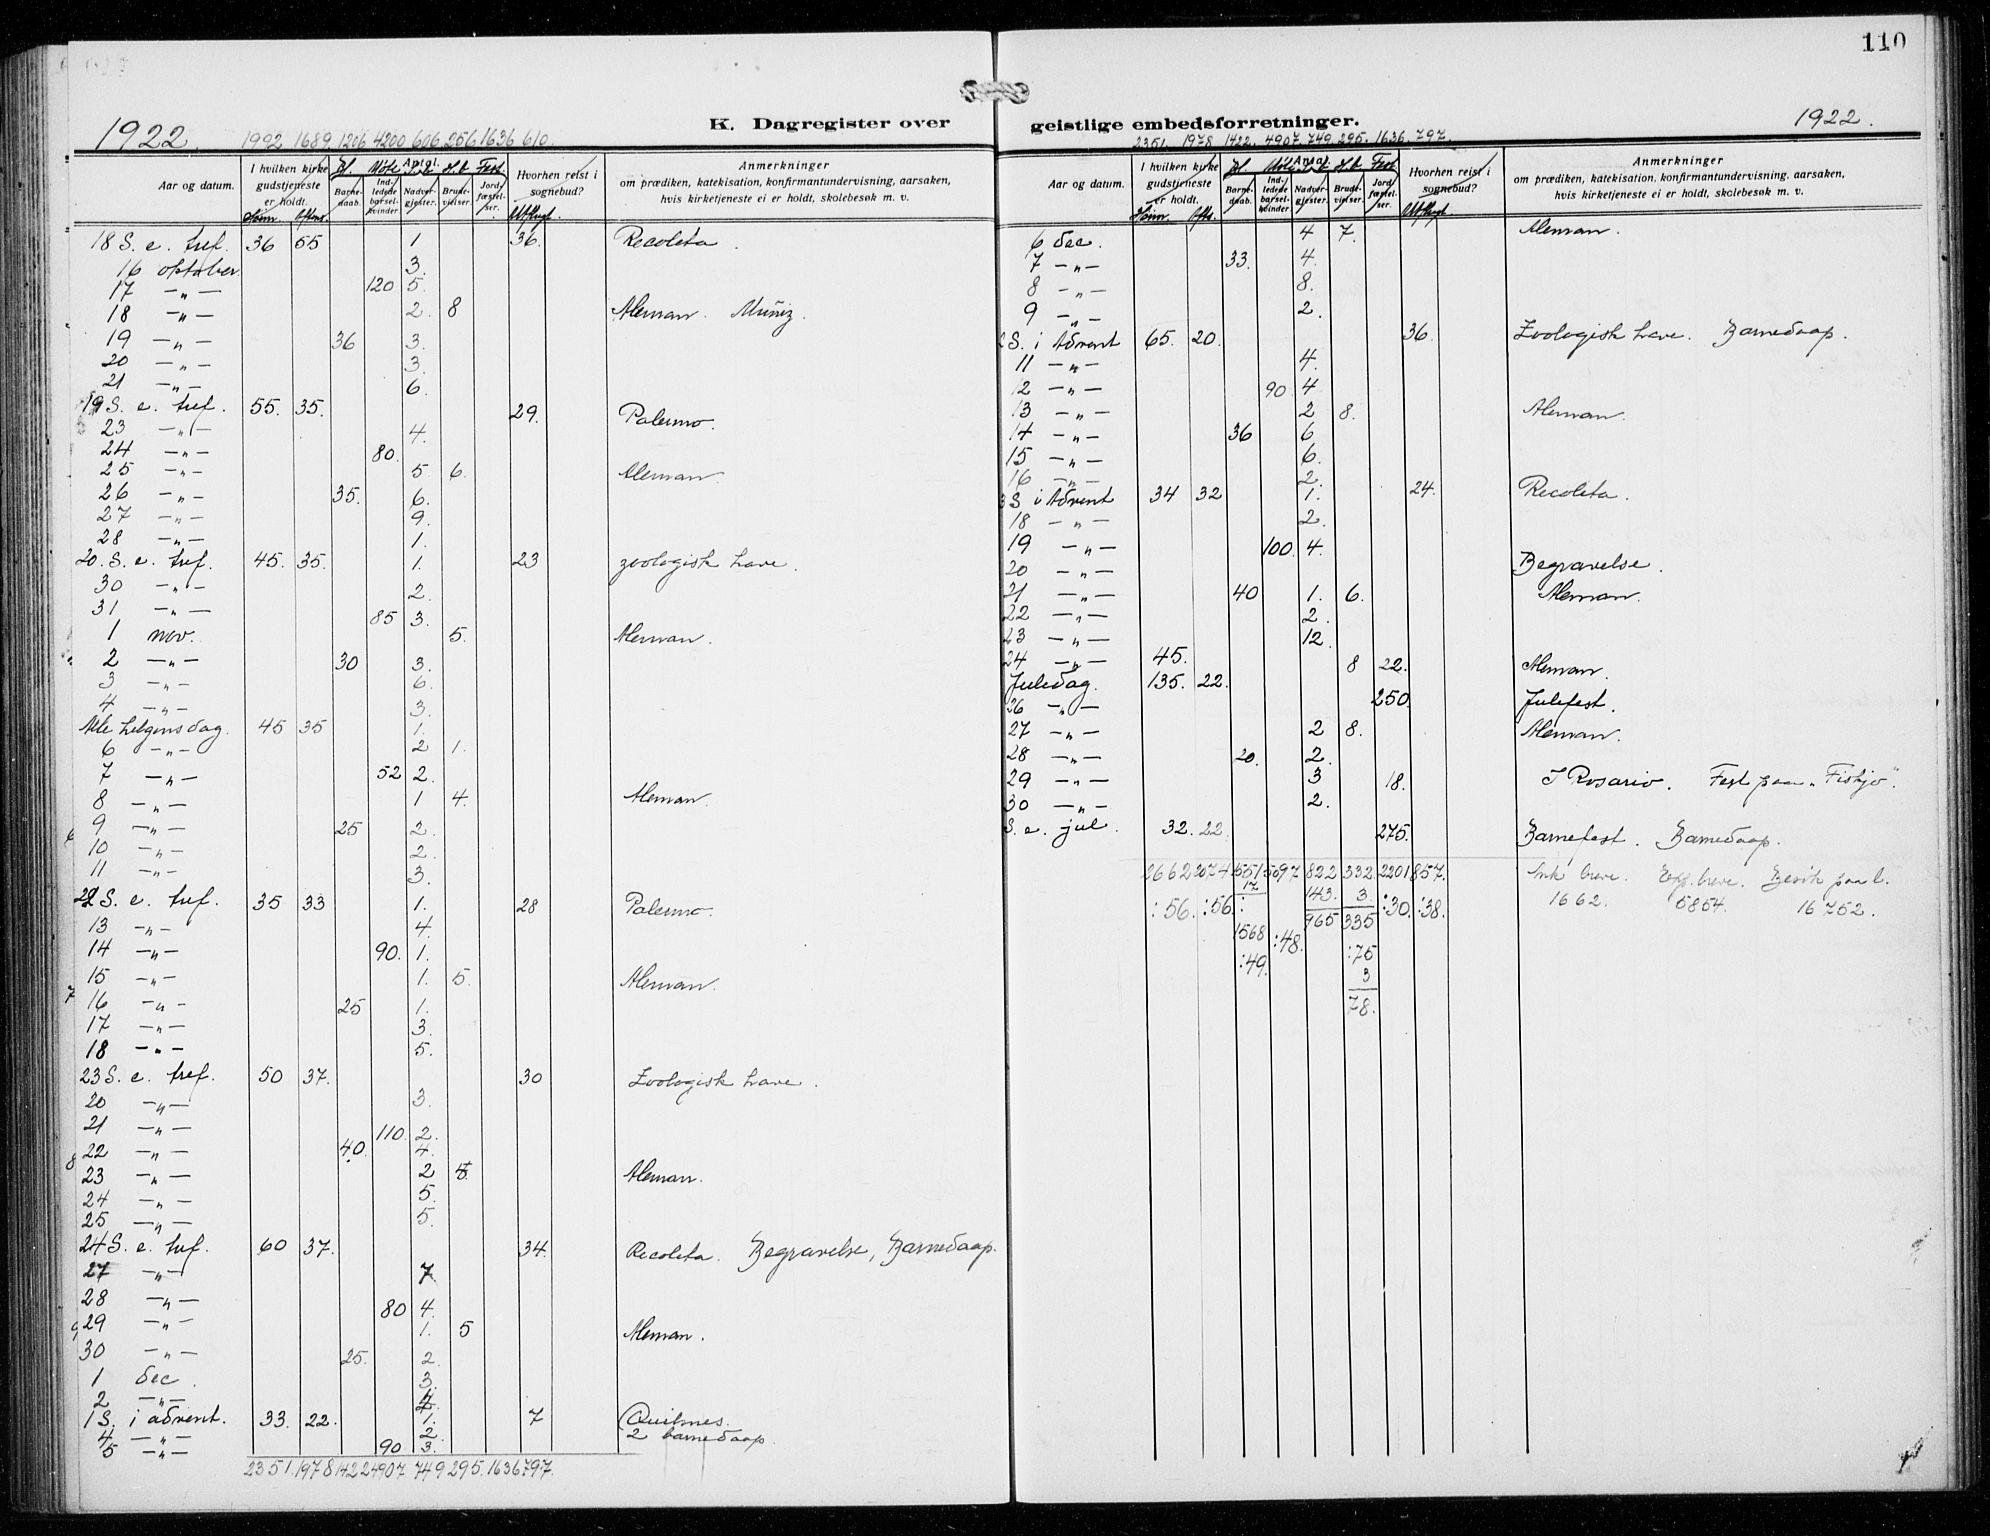 110
K. Dagregister over geistlige embedsforretninger.
1922.
1992 1689 1206 4200 606 256 1636 610.
Aar og datum.
I hvilken kirke gudstjeneste er holdt.
Form. Aftens.
Antal.
Møte
Fest
Barne-daab.
Ind-ledede barsel-kvinder
Nadver-gjester.
Brude-vielser.
Jord-fæstel-ser.
Hvorhen reist i sognebud?
Utflugt
Anmerkninger
om prædiken, katekisation, konfirmantundervisning, aarsaken, hvis kirketjeneste ei er holdt, skolebesøk m. v.
18 S. e. tref. 36 55 1 36. Recoleta.
16 oktober 3.
17 -"- 120 5.
18 -"- 2. 8 Aleman. Muñiz.
19 -"- 36 3.
20 -"- 3.
21 -"- 6.
19 S. e. tref. 55. 35. 29. Palermo.
23 -"- 4.
24 -"- 80.
25 -"- 5 6. Aleman.
26 -"- 35. 6.
27 -"- 9.
28 -"- 1.
20. S. e. tref. 45. 35. 1. 23 zoologisk have.
30 -"- 2.
31 -"- 85 3.
1 nov. 5. Aleman.
2 -"- 30 3.
3 -"- 6.
4 -"- 3.
Alle helgensdag. 45 35 1.
6 -"- 2 1.
7 -"- 52 2.
8 -"- 1 4. Aleman.
9 -"- 25 2.
10 -"- 2.
11 -"- 3.
22 S. e. tref. 35 33 1. 28 Palermo.
13 -"- 4.
14 -"- 90. 1.
15 -"- 1. 5. Aleman.
16 -"- 25 1.
17 -"- 3.
18 -"- 5.
23 S. e. tref. 50 37. 30 Zoologisk have.
20 -"- 3.
21 -"- 110. 2.
22 -"- 40. 4.
23 -"- 2 Aleman.
24 -"- 5.
25 -"- 5.
24 S. e. tref. 60 37. 34. Recoleta. Begravelse, Barnedaap.
27 -"- 7.
28 -"- 80 4.
29 -"- 1. 5 Aleman.
30 -"- 25. 2.
1 dec. 3.
2 -"-
1 S. i advent. 33. 22. 1. 7 Quilmes.
4 -"- 2. 2 barnedaap
5 -"- 90 3.
2351. 1978 1422 4907 749 295. 1636 797.
1922.
2351. 1978. 1422. 4907. 749. 295. 1636. 797.
Aar og datum.
I hvilken kirke gudstjeneste er holdt.
Form. Aft.
Antal
Møte
Fest
Barne-daab.
Ind-ledede barsel-kvinder
Nadver-gjester.
Brude-vielser.
Jord-fæstel-ser.
Hvorhen reist i sognebud?
Utflugt
Anmerkninger
om prædiken, katekisation, konfirmantundervisning, aarsaken, hvis kirketjeneste ei er holdt, skolebesøk m. v.
6 dec. 4 7. Aleman.
7 -"- 33. 4.
8 -"- 8.
9 -"- 2.
2 S. i Advent 65. 20. 36. Zoologisk have. Barnedaap.
11 -"- 4.
12 -"- 90 4
13 -"- 2 8. Aleman.
14 -"- 36 6
15 -"- 6.
16 -"- 2.
3 S. i Advent 34 32 1. 24. Recoleta.
18 -"- 2.
19 -"- 100. 4.
20 -"- Begravelse.
21 -"- 40 1. 6. Aleman.
22 -"- 2.
23 -"- 12.
24 -"- 45. 8 22. Aleman.
Juledag. 135. 22.
26 -"- 250. Julefest.
27 -"- 2 8. Aleman.
28 -"- 20. 2.
29 -"- 3 18. I Rosario. Fest paa "Fiskjo".
30 -"- 2.
S. e. jul. 32. 22. 275. Barnefest. Barnedaap.
2662 2074 1551 5097 822 332. 2201 857. Ink breve. Exp. breve. Besök paa l.
17 143. 3. 1662. 5854. 16752.
:56. :56. : 965 335 :30. :38.
1568 :48. :75
:49. 3
78.